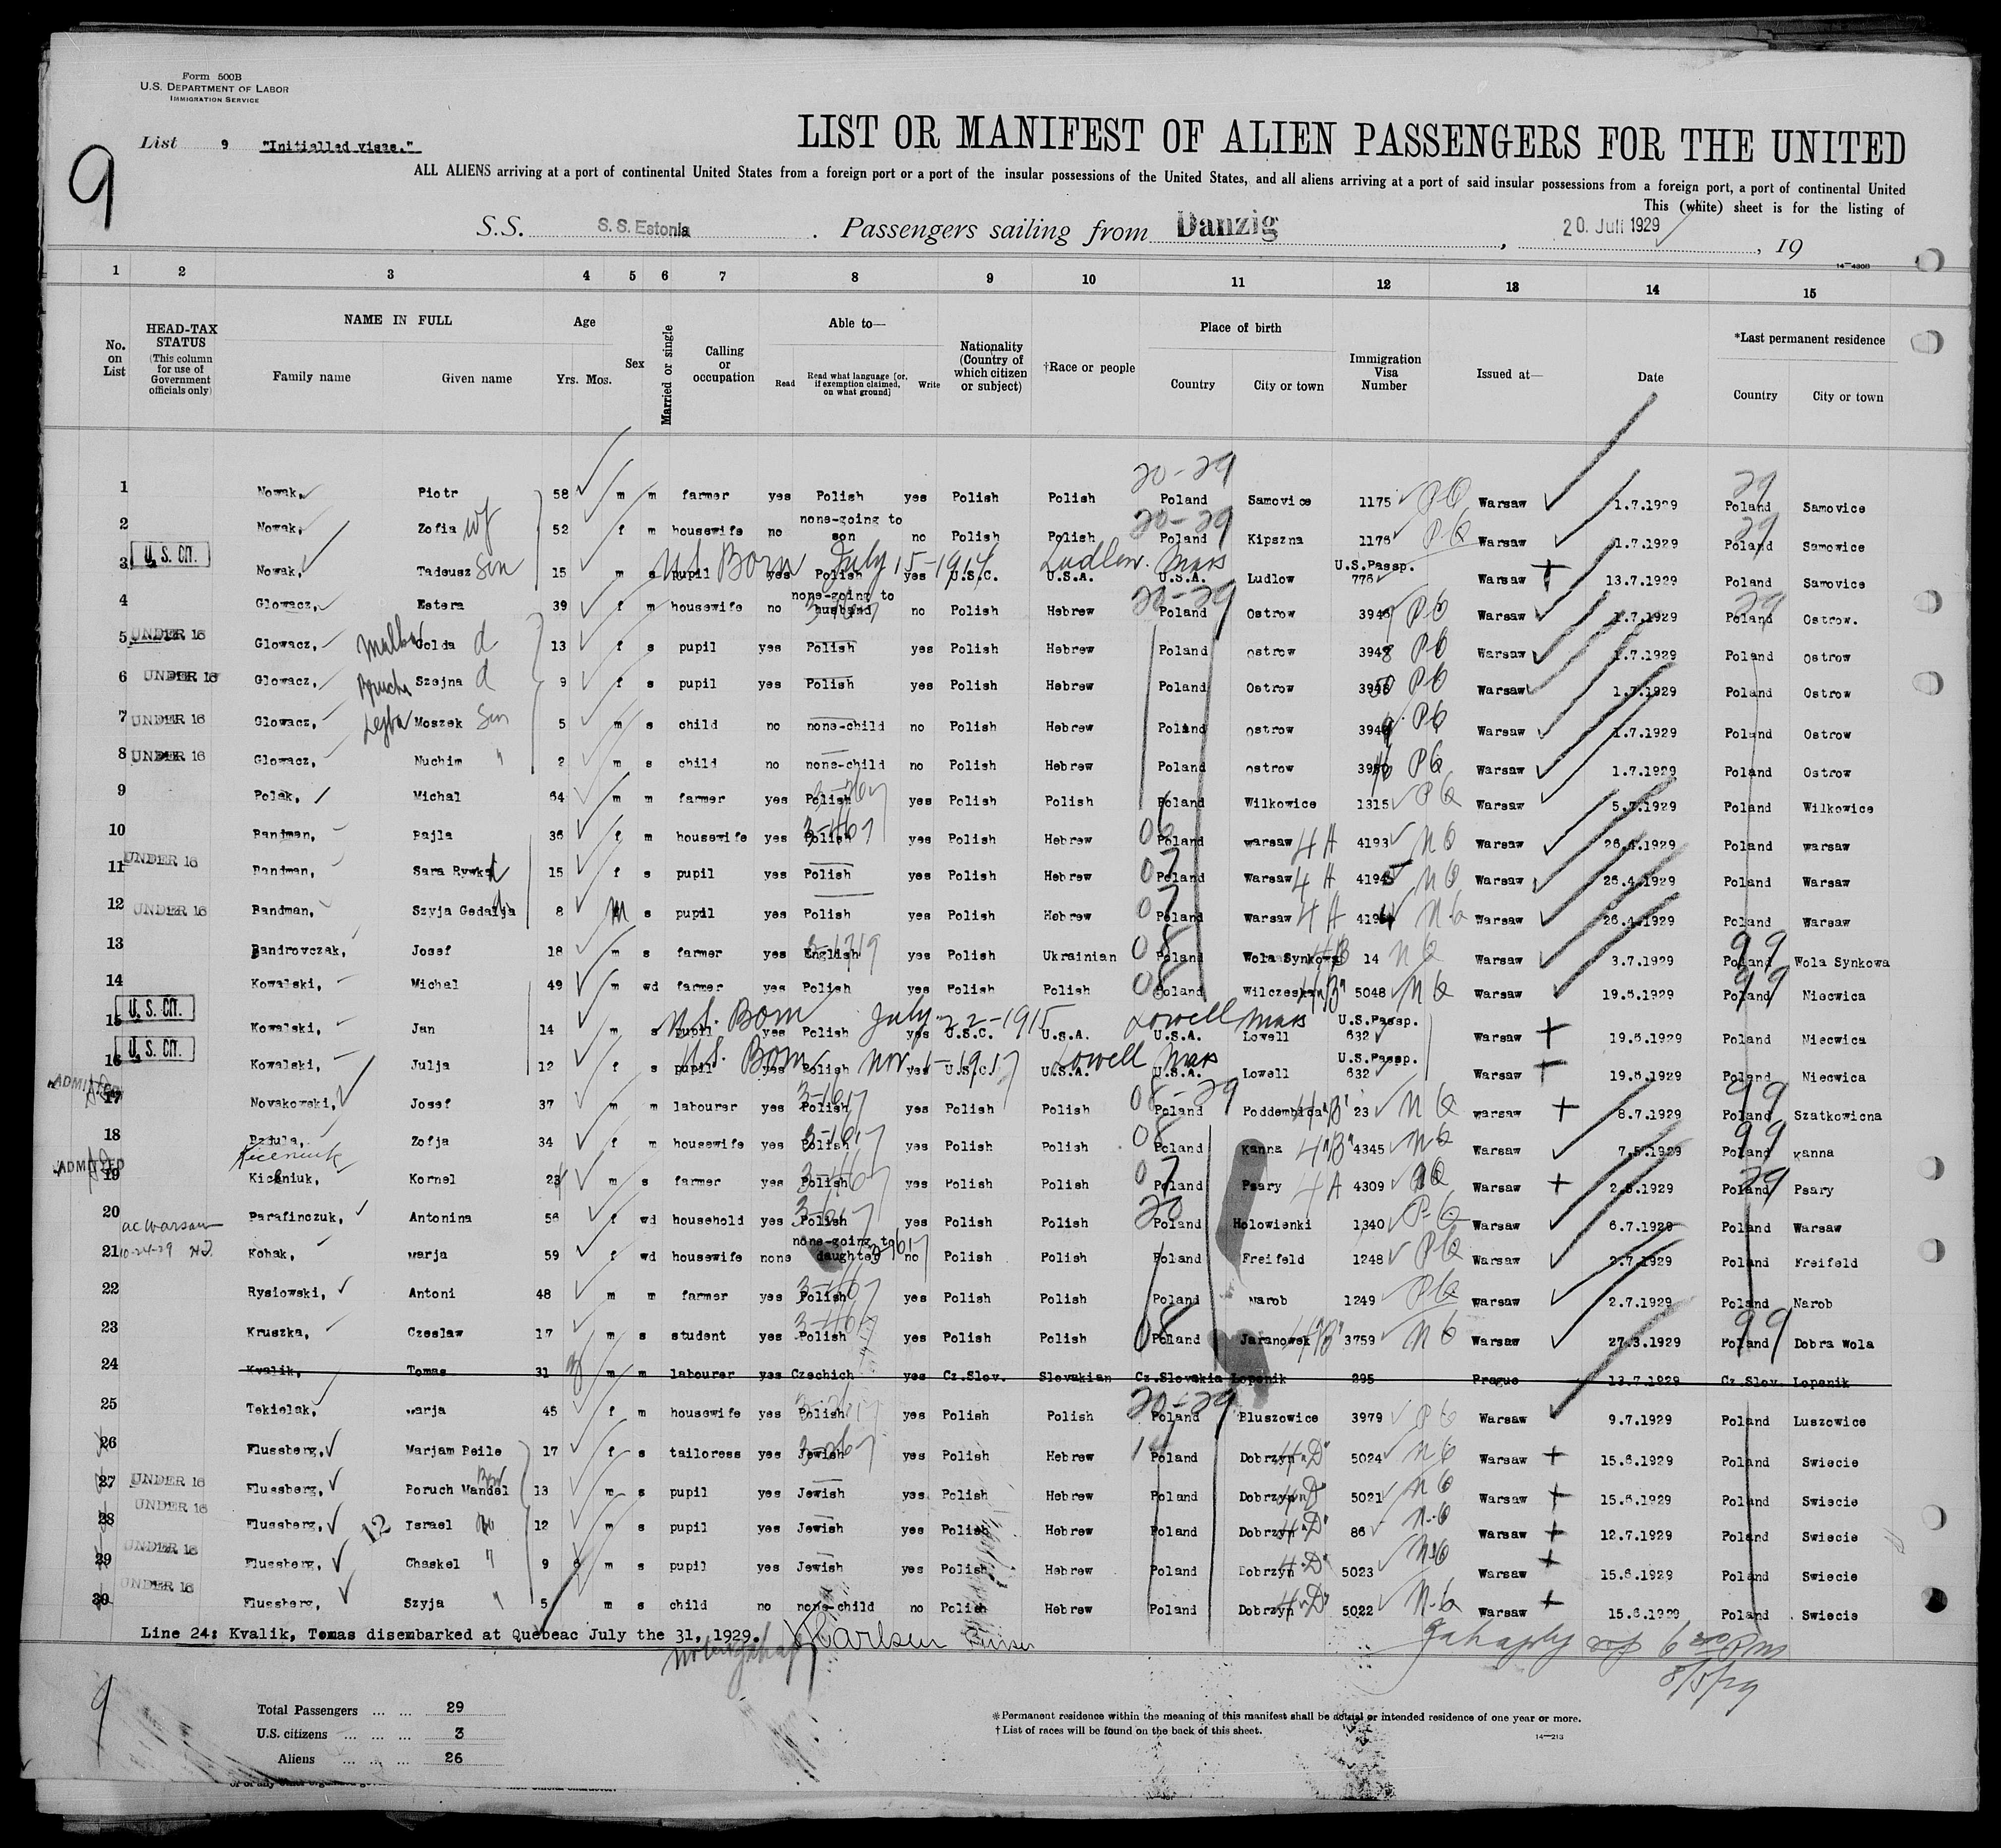 Form 500B
U.S. DEPARTMENT OF LABOR
IMMIGRATION SERVICE
List 9 "Initialled visas."
9
LIST OR MANIFEST OF ALIEN PASSENGERS FOR THE UNITED
ALL ALIENS arriving at a port of continental United States from a foreign port or a port of the insular possessions of the United States, and all aliens arriving at a port of said insular possessions from a foreign port, a port of continental United
This (white) sheet is for the listing of
S.S. S. S. Estonia . Passengers sailing from Danzig , 20. Juli 1929 , 19
14—430B
1 2 3 4 5 6 7 8 9 10 11 12 13 14 15
No. on List
HEAD-TAX STATUS (This column for use of Government officials only)
NAME IN FULL Family name Given name
Age Yrs. Mos.
Sex
Married or single
Calling or occupation
Able to— Read Read what language [or, if exemption claimed, on what ground] Write
Nationality (Country of which citizen or subject)
†Race or people
Place of birth Country City or town
Immigration Visa Number
Issued at—
Date
*Last permanent residence Country City or town
20-29 29
1 Nowak, Piotr 58 m m farmer yes Polish yes Polish Polish Poland Samovice 1175 PQ Warsaw 1.7.1929 Poland Samovice
2 Nowak, Zofia wf 52 f m housewife no none-going to son no Polish Polish Poland Kipszna 1176 PQ Warsaw 1.7.1929 Poland Samowice
U. S. CIT.
U.S. Born July 15-1914 Ludlow. Mass
3 Nowak, Tadeusz Son 15 m s pupil yes Polish yes U.S.C. U.S.A. U.S.A. Ludlow U.S.Passp. 776 Warsaw 13.7.1929 Poland Samovice
4 Glowacz, Estera 39 f m housewife no none-going to husband no Polish Hebrew Poland Ostrow PQ Warsaw 1.7.1929 Poland Ostrow.
5 UNDER 16 Glowacz, Golda d 13 f s pupil yes Polish yes Polish Hebrew Poland Ostrow 3948 PQ Warsaw 1.7.1929 Poland Ostrow
6 UNDER 16 Glowacz, Szejna d 9 f s pupil yes Polish yes Polish Hebrew Poland Ostrow PQ Warsaw 1.7.1929 Poland Ostrow
7 UNDER 16 Glowacz, Lejba Moszek Son 5 m s child no none-child no Polish Hebrew Poland Ostrow PQ Warsaw 1.7.1929 Poland Ostrow
8 UNDER 16 Glowacz, Nuchim " 2 m s child no none-child no Polish Hebrew Poland Ostrow PQ Warsaw 1.7.1929 Poland Ostrow
9 Polak, Michal 64 m m farmer yes Polish yes Polish Polish Poland Wilkowice 1315 PQ Warsaw 5.7.1929 Poland Wilkowice
10 Bandman, Bajla 36 f m housewife yes Polish yes Polish Hebrew Poland Warsaw 4A 4193 NQ Warsaw 26.4.1929 Poland Warsaw
11 UNDER 16 Bandman, Sara Rywka 15 f s pupil yes Polish yes Polish Hebrew Poland Warsaw 4A 4195 NQ Warsaw 26.4.1929 Poland Warsaw
12 UNDER 16 Bandman, Szyja Gedalja 8 m s pupil yes Polish yes Polish Hebrew Poland Warsaw 4A 4194 NQ Warsaw 26.4.1929 Poland Warsaw
13 Bandrovczak, Josef 18 m s farmer yes English yes Polish Ukrainian Poland Wola Synkowa 14 NQ Warsaw 3.7.1929 Poland Wola Synkowa
14 Kowalski, Michal 49 m wd farmer yes Polish yes Polish Polish Poland 5048 NQ Warsaw 19.6.1929 Poland Niecwica
U. S. CIT.
U.S. Born July 22-1915 Lowell Mass
15 Kowalski, Jan 14 m s pupil yes Polish yes U.S.C. U.S.A. U.S.A. Lowell U.S.Passp. 632 Warsaw 19.6.1929 Poland Niecwica
U. S. CIT.
U.S. Born Nov. 1-1917 Lowell Mass
16 Kowalski, Julja 12 f s pupil yes Polish yes U.S.C. U.S.A. U.S.A. Lowell U.S.Passp. 632 Warsaw 19.6.1929 Poland Niecwica
ADMITTED
17 Novakowski, Josef 37 m m labourer yes Polish yes Polish Polish Poland Poddembica "B" 23 NQ Warsaw 8.7.1929 Poland Szatkowicna
18 Bzdula, Zofja 34 f m housewife yes Polish yes Polish Polish Poland Kanna 4"B" 4345 NQ Warsaw 7.5.1929 Poland Kanna
Kiceniuk
ADMITTED
19 Kiceniuk, Kornel 23 m s farmer yes Polish yes Polish Polish Poland Psary 4A 4309 NQ Warsaw 2.5.1929 Poland Psary
20 Parafinczuk, Antonina 56 f wd household yes Polish yes Polish Polish Poland Holowienki 1340 PQ Warsaw 6.7.1929 Poland Warsaw
ac Warsaw
10-24-29
21 Kohak, Marja 59 f wd housewife none none-going to daughter no Polish Polish Poland Freifeld 1248 PQ Warsaw 2.7.1929 Poland Freifeld
22 Rysiowski, Antoni 48 m m farmer yes Polish yes Polish Polish Poland Narob 1249 PQ Warsaw 2.7.1929 Poland Narob
23 Kruszka, Czeslaw 17 m s student yes Polish yes Polish Polish Poland Jaranowek 3759 NQ Warsaw 27.3.1929 Poland Dobra Wola
24 Kvalik, Tomas 31 m m labourer yes Czechich yes Cz.Slov. Slovakian Cz.Slovakia Lopenik 295 Prague 13.7.1929 Cz.Slov. Lopenik
20-29
25 Tekielak, Marja 45 f m housewife yes Polish yes Polish Polish Poland Bluszowice 3979 PQ Warsaw 9.7.1929 Poland Luszowice
26 Flussberg, Marjam Peile 17 f s tailoress yes Jewish yes Polish Hebrew Poland Dobrzyn "D" 5024 NQ Warsaw 15.6.1929 Poland Swiecie
27 UNDER 16 Flussberg, Boruch Mandel 13 m s pupil yes Jewish yes Polish Hebrew Poland Dobrzyn "D" 5021 NQ Warsaw 15.6.1929 Poland Swiecie
28 UNDER 16 Flussberg, 12 Israel 12 m s pupil yes Jewish yes Polish Hebrew Poland Dobrzyn "D" 86 NQ Warsaw 12.7.1929 Poland Swiecie
29 UNDER 16 Flussberg, Chaskel " 9 m s pupil yes Jewish yes Polish Hebrew Poland Dobrzyn "D" 5023 NQ Warsaw 15.6.1929 Poland Swiecie
30 UNDER 16 Flussberg, Szyja " 5 m s child no none-child no Polish Hebrew Poland Dobrzyn "D" 5022 NQ Warsaw 15.6.1929 Poland Swiecie
Line 24: Kvalik, Tomas disembarked at Quebeac July the 31, 1929. Karlsen Purser
6 00 PM
8/1/29
9
Total Passengers ... ... 29
U.S. citizens ... ... ... 3
Aliens ... ... ... 26
* Permanent residence within the meaning of this manifest shall be actual or intended residence of one year or more.
† List of races will be found on the back of this sheet.
14—213